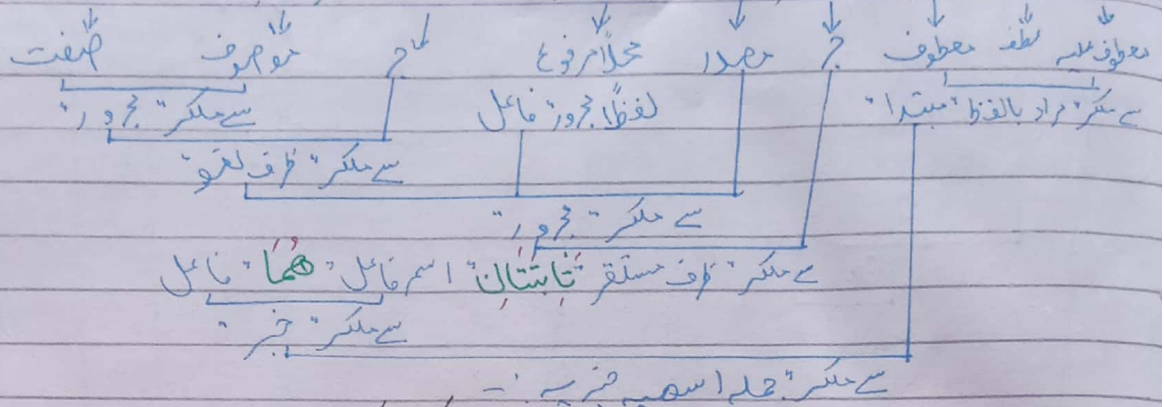 معطوف علیہ عطف معطوف جر مصدر محلاً مرفوع جر موصوف صفت
سے ملکر مراد بالفظ مبتدا لفظاً مجرور فاعل سے ملکر مجرور
سے ملکر ظرف لغو
سے ملکر مجرور
سے ملکر ظرف مستقر ثَابِتَتَانِ اسم فاعل هُمَا فاعل
سے ملکر خبر
سے ملکر جملہ اسمیہ خبریہ :-